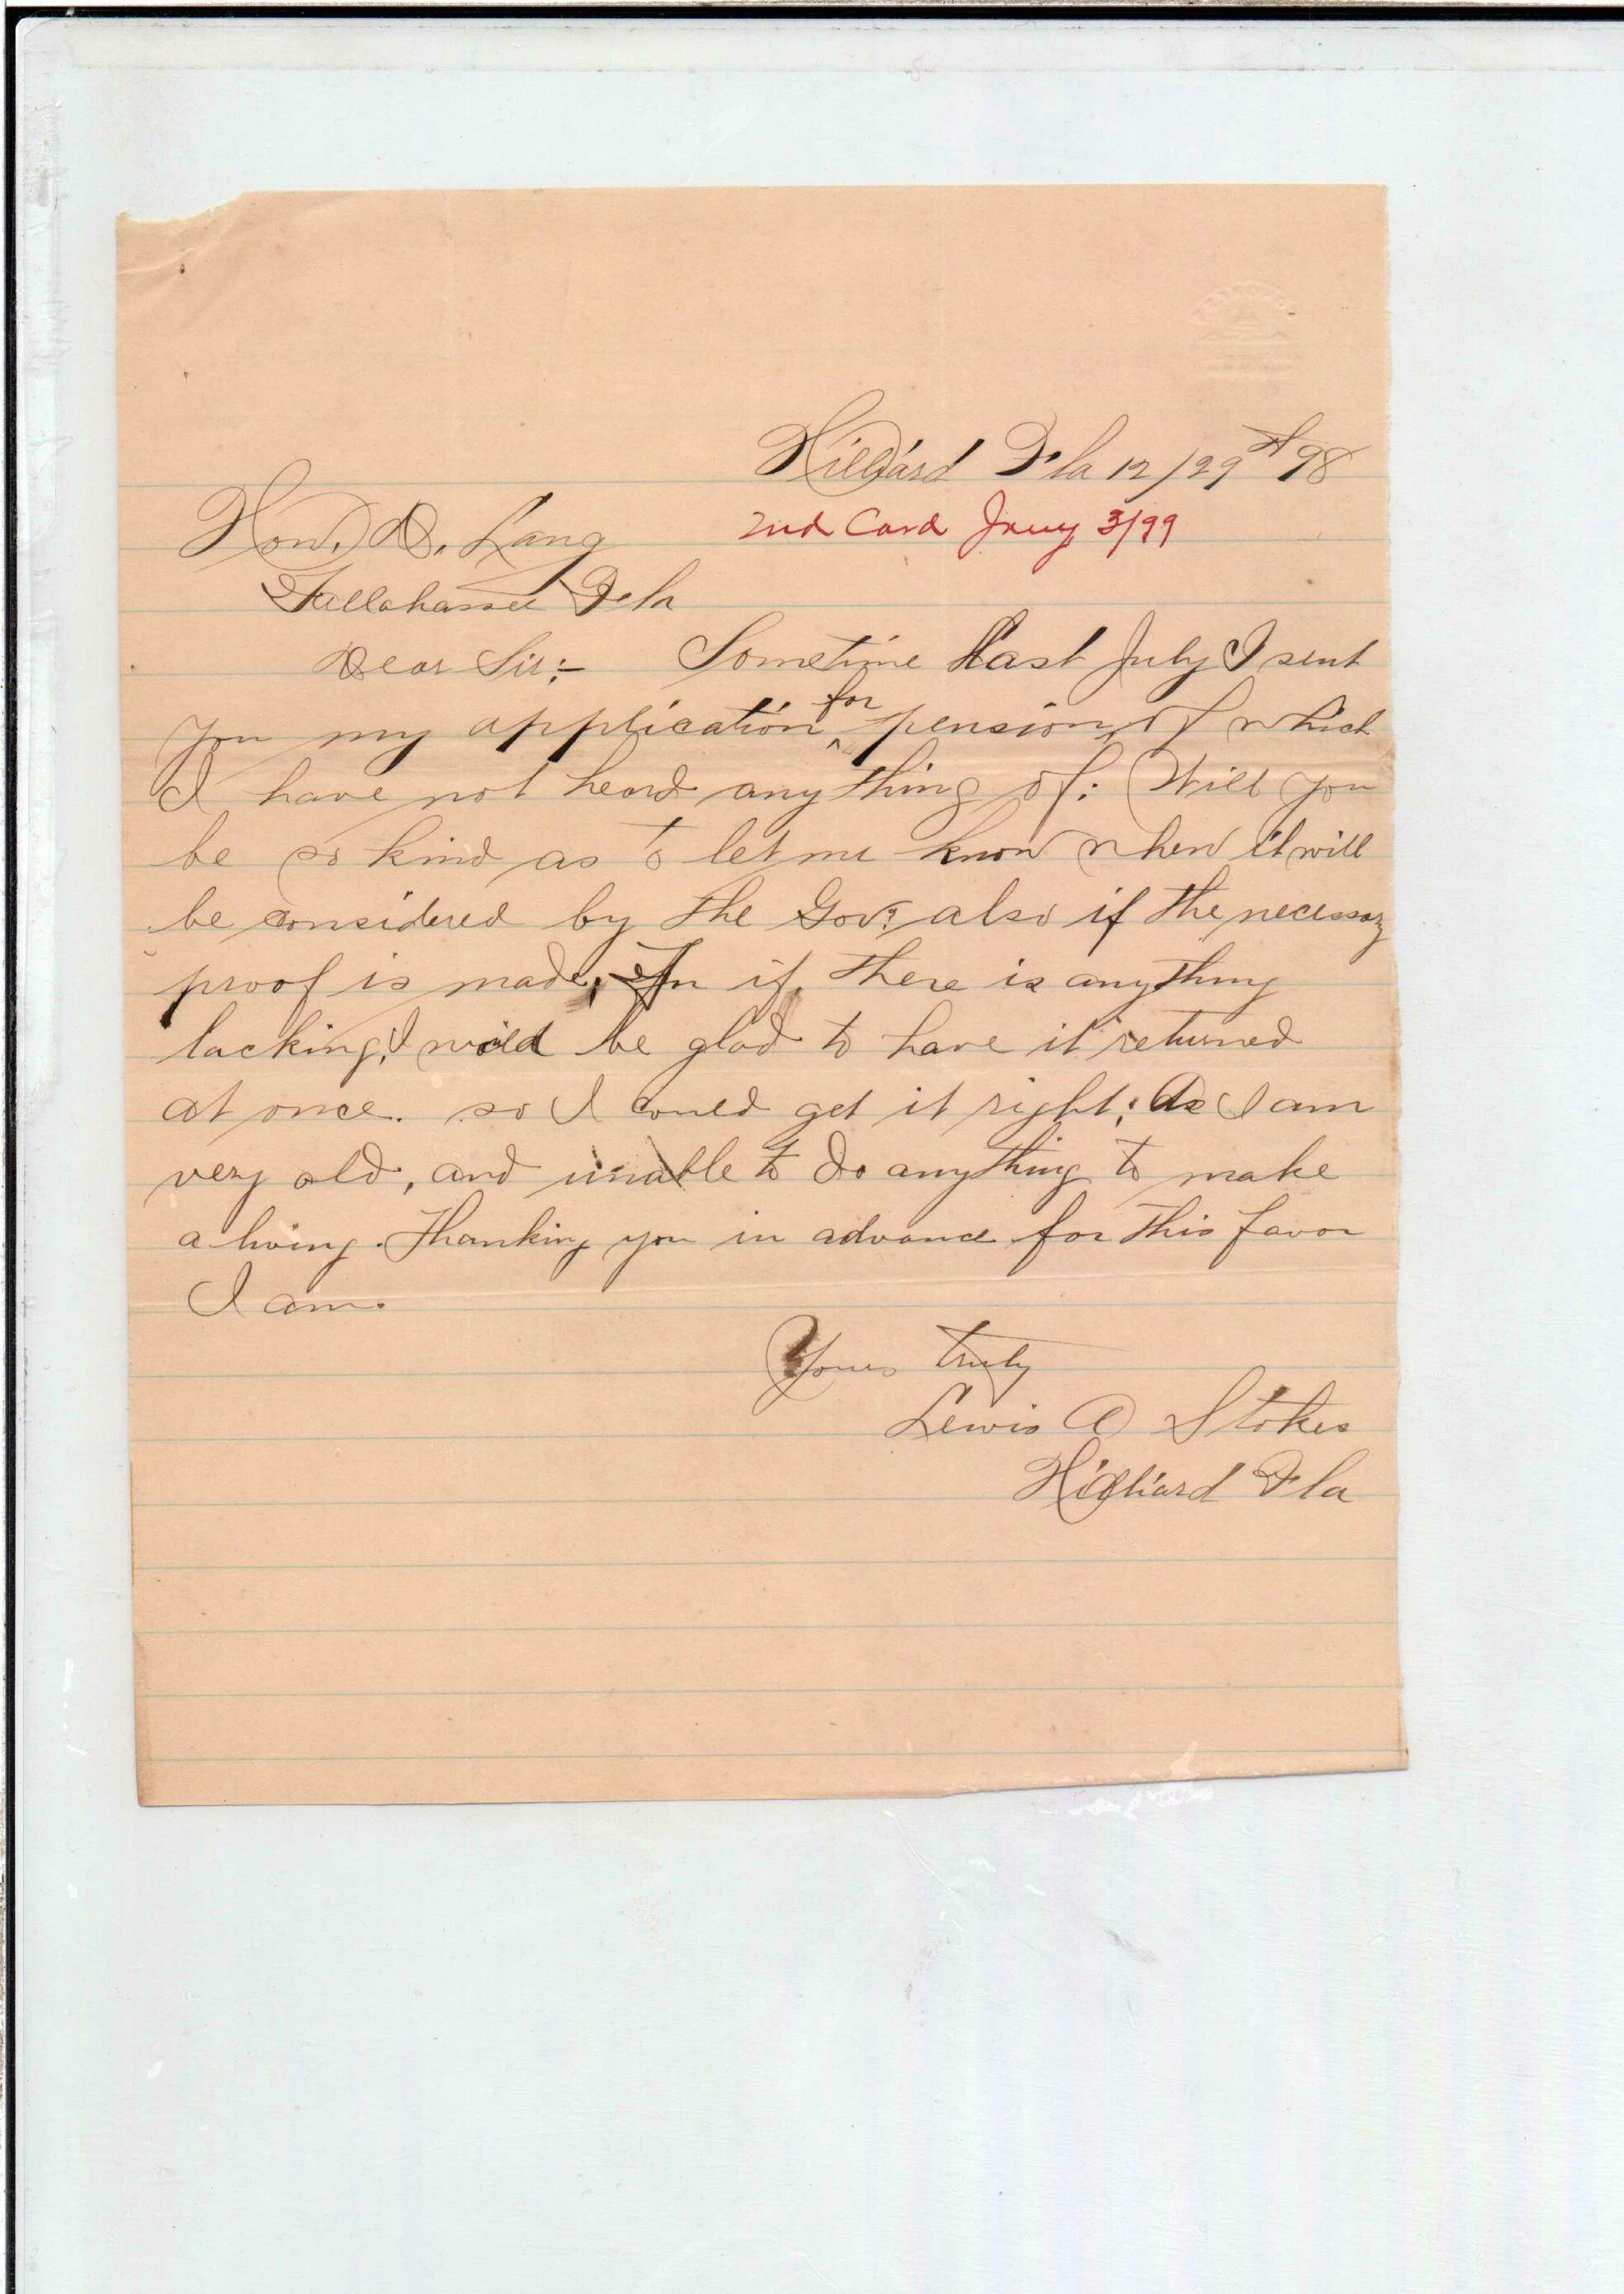 Hilliard Fla 12/29th 98
2nd Card Jany 3/99
Hon. D. Lang
Tallahassee Fla
Dear Sir:- Sometime Last July I sent
you my application for pension, of which
I have not heard any thing of: Will you
be so kind as to let me know when it will
be considered by the Gov: also if the necessary
proof is made, if there is anything
lacking, I would be glad to have it returned
at once. so I could get it right; As I am
very old, and unable to do anything to make
a living. Thanking you in advance for this favor
I am.
Yours truly
Lewis A Stokes
Hilliard Fla